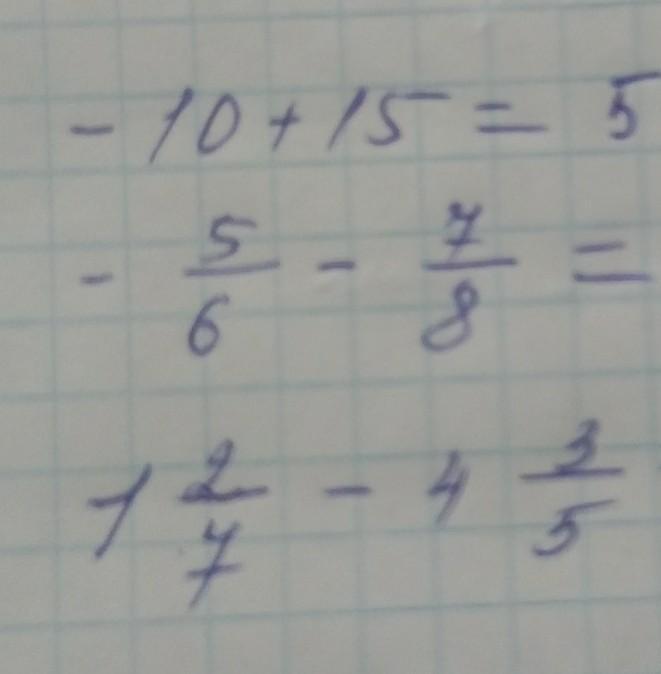 - 10 + 15 = 5
- 5/6 - 7/8 =
1 2/7 - 4 3/5